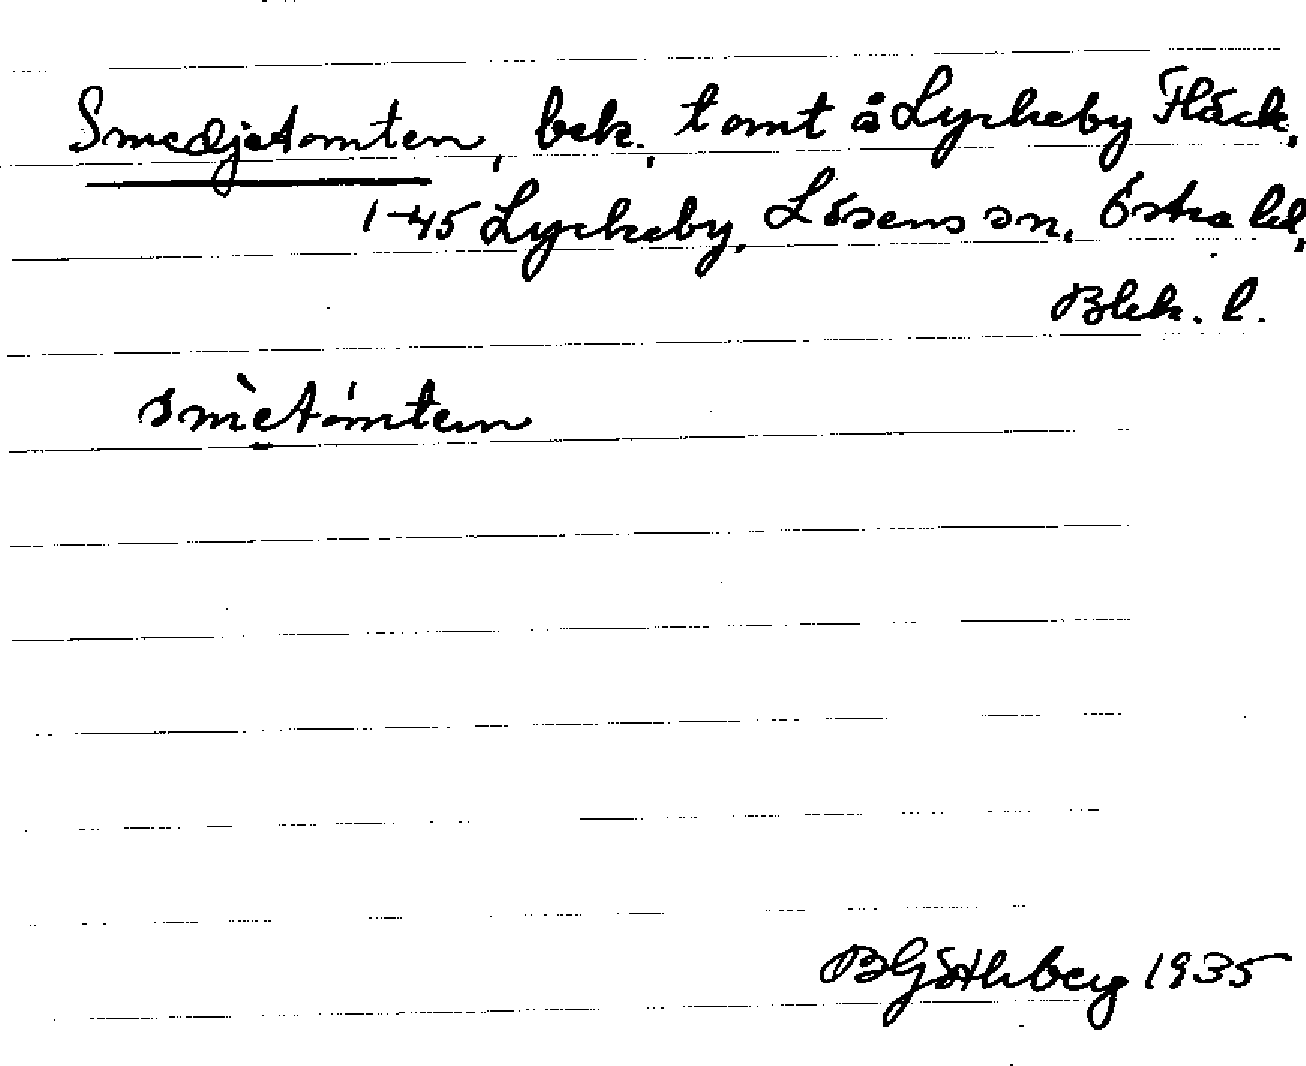 Smedjetomten, bek. tomt å Lyckeby Fläck,
1-45 Lyckeby, Lösens sn, Östra hd,
Blek. l.
smìetómten
BGöthberg 1935